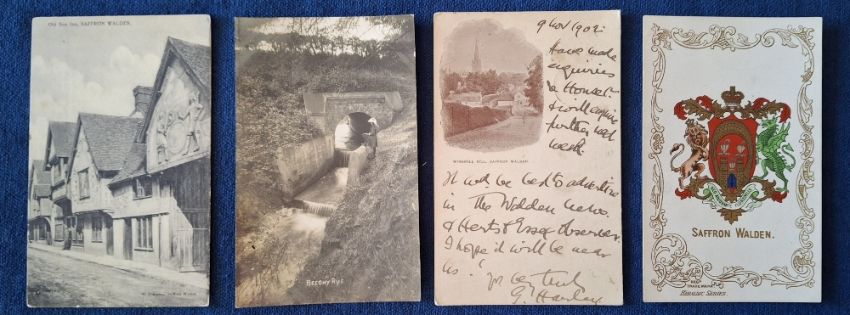 Old Sun Inn, SAFFRON WALDEN.
Beechy Rye
9 Nov 1902.
Have made
enquiries
a House
& will enquire
further next
week.
WINDMILL HILL, SAFFRON WALDEN.
It will be best to advertise
in The Walden news.
& Herts & Essex Observer.
I hope it will be near
us!
SAFFRON WALDEN.
TRADE MARK
HERALDIC SERIES